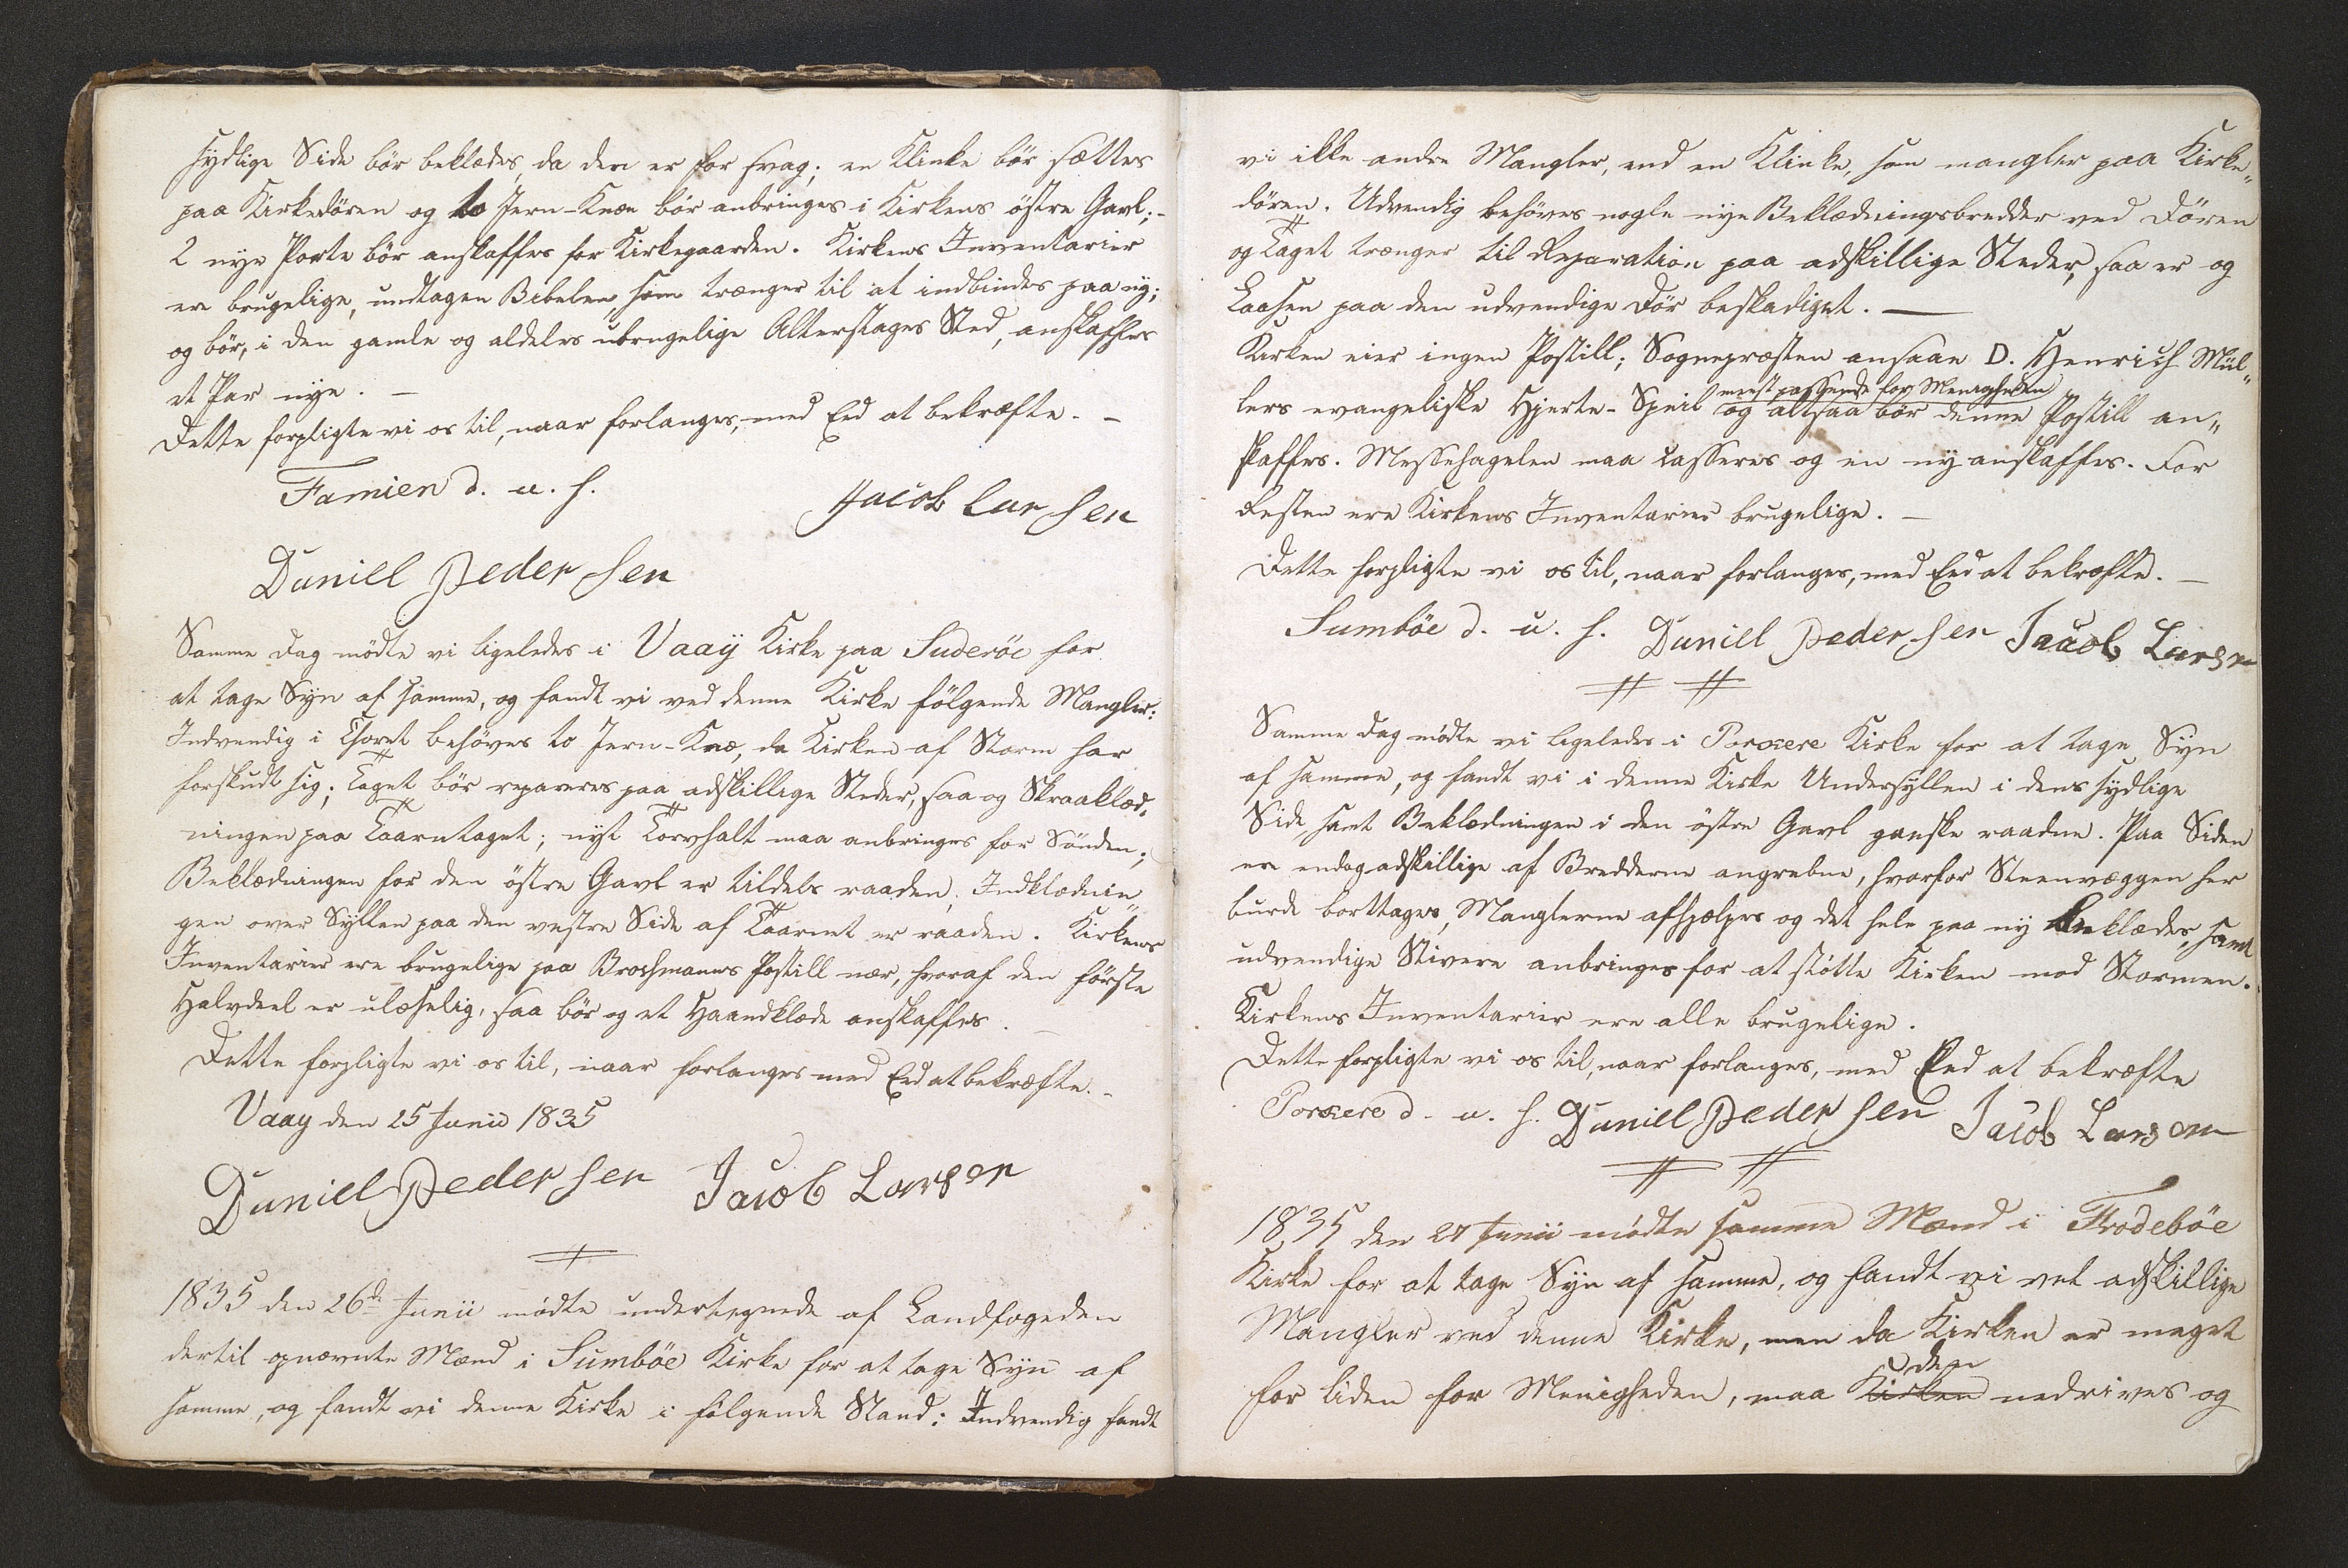 sydlige Side bör beklædes, da den er for svag; en Klinke bör sættes
paa Kirkedören og to Jern-Knæe bör anbringes i Kirkens östre Gavl;-
2 nye Porte bör anskaffes for Kirkegaarden. Kirkens Inventarier
ere brugelige, undtagen Bibelen, som trænger til at indbindes paa ny;
og bör, i den gamle og aldeles ubrugelige Alterstages Sted, anskaffes
et Par nye. -
Dette forpligte vi os til, naar forlanges, med Eed at bekræfte. -
Famien d. u. s.
Jacob Larsen
Daniel Pedersen
Samme Dag mödte vi ligeledes i Vaaÿ Kirke paa Suderöe for
at tage Syn af samme, og fandt vi ved denne Kirke fölgende Mangler:
Indvendig i Choret behöves to Jern-Knæ, da Kirken af Storm har
forskudt sig; Taget bör repareres paa adskillige Steder, saa og Skraaklæd-
ningen paa Taarntaget; nyt Torvhalt maa anbringes for Sönden;
Beklædningen for den östre Gavl er tildels raaden; Indklædnin„
gen over Syllen paa den vestre Side af Taarnet er raaden. Kirkens
Inventarier ere brugelige paa Brochmanns Postill nær, hvoraf den förste
Halvdeel er ulæselig, saa bör og et Haandklæde anskaffes.
Dette forpligte vi os til, naar forlanges med Eed at bekræfte. -
Vaay den 25 Junii 1835
Daniel Pedersen Jacob Larsen
1835 den 26de Junii mödte undertegnede af Landfogeden
dertil opnævnte Mænd i Sumböe Kirke for at tage Syn af
samme, og fandt vi denne Kirke i fölgende Stand: Indvendig fandt
vi ikke andre Mangler, end en Klinke, som mangler paa Kirke„
dören. Udvendig behöves nogle nye Beklædningsbredder ved Dören
og Taget trænger til Reparation paa adskillige Steder, saa er og
Laasen paa den udvendige Dör beskadiget. -
Kirken eier ingen Postill; Sognepræsten ansaae D. Henrich Mül„
mest passende for Menigheden
lers evangeliske Hjerte-Speil og altsaa bör denne Postill an„
skaffes. Messehagelen maa casseres og en ny anskaffes. For
Resten ere Kirkens Inventarier brugelige. -
Dette forpligte vi os til, naar forlanges, med Eed at bekræfte. -
Sumböe d. u. s. Daniel Pedersen Jacob Larsen
Samme Dag mödte vi ligeledes i Porkere Kirke for at tage Syn
af samme, og fandt vi i denne Kirke Undersyllen i dens sydlige
Side samt Beklædningen i den östre Gavl ganske raadne. Paa Siden
ere endog adskillige af Bredderne angrebne, hvorfor Steenvæggen her
burde borttages, Manglerne afhjælpes og det hele paa ny beklædes, samt
udvendige Stivere anbringes for at stötte Kirken mod Stormen.
Kirkens Inventarier ere alle brugelige.
Dette forpligte vi os til, naar forlanges, med Eed at bekræfte
Porkere d. u. s. Daniel Pedersen Jacob Larsen
1835 den 27 Junii mödte samme Mænd i Frodeböe
Kirke for at tage Syn af samme, og fandt vi vel adskillige
Mangler ved denne Kirke, men da Kirken er meget
den
for liden for Menigheden, maa Kirken nedrives og